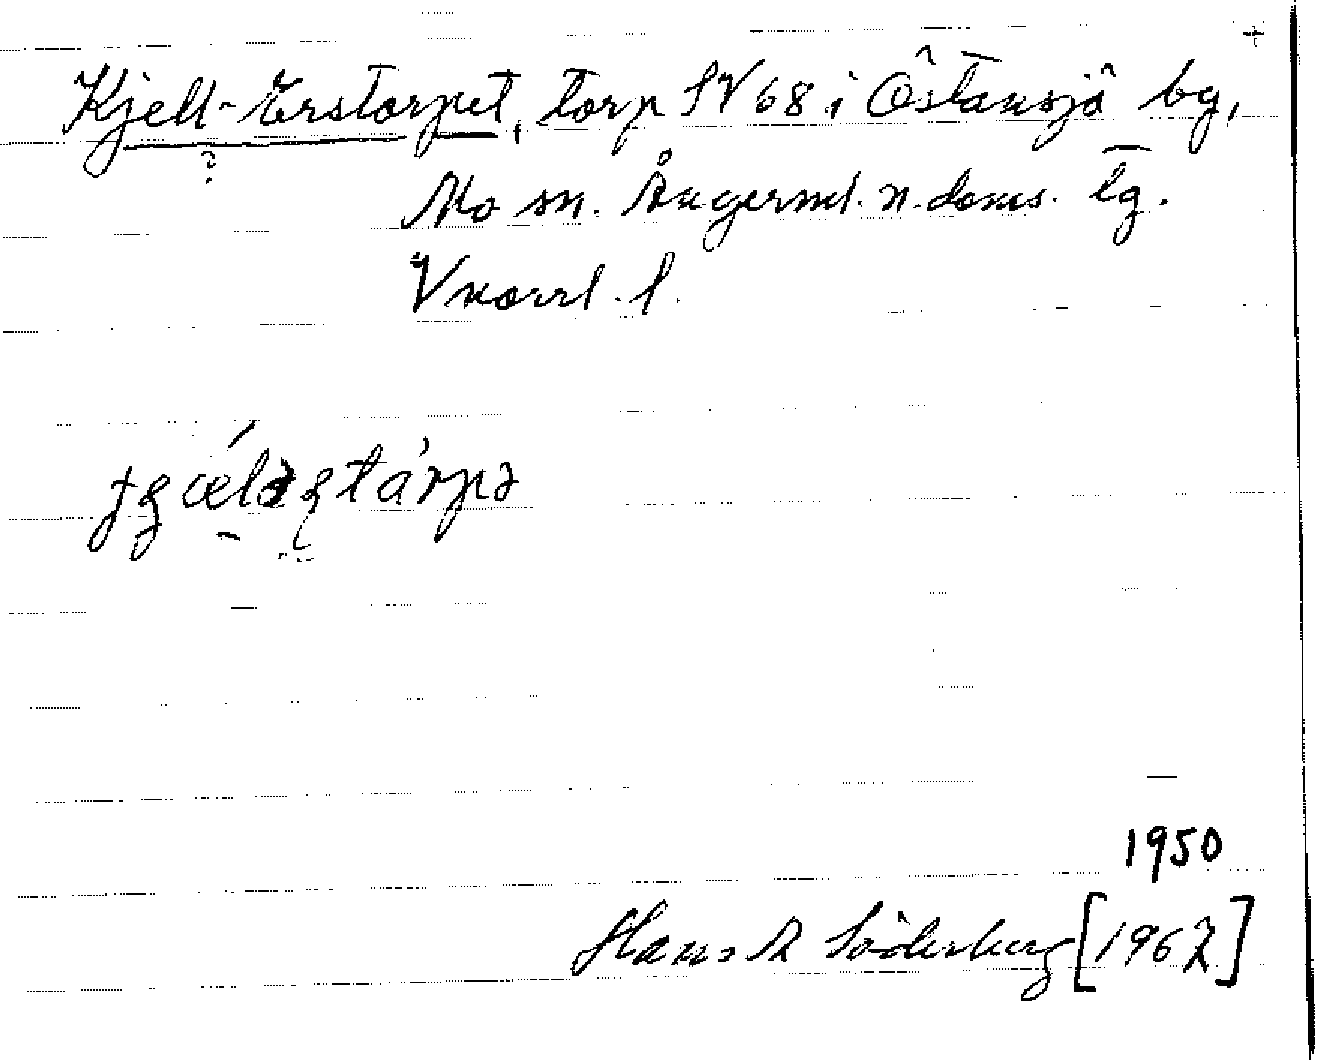 +
Kjell-Erstorpet, torp SV 68 i Östansjö bg,
?
Mo sn. Ångerml. n. doms. lg.
Vnorrl. l.
1950
Hans A Söderberg [1967]